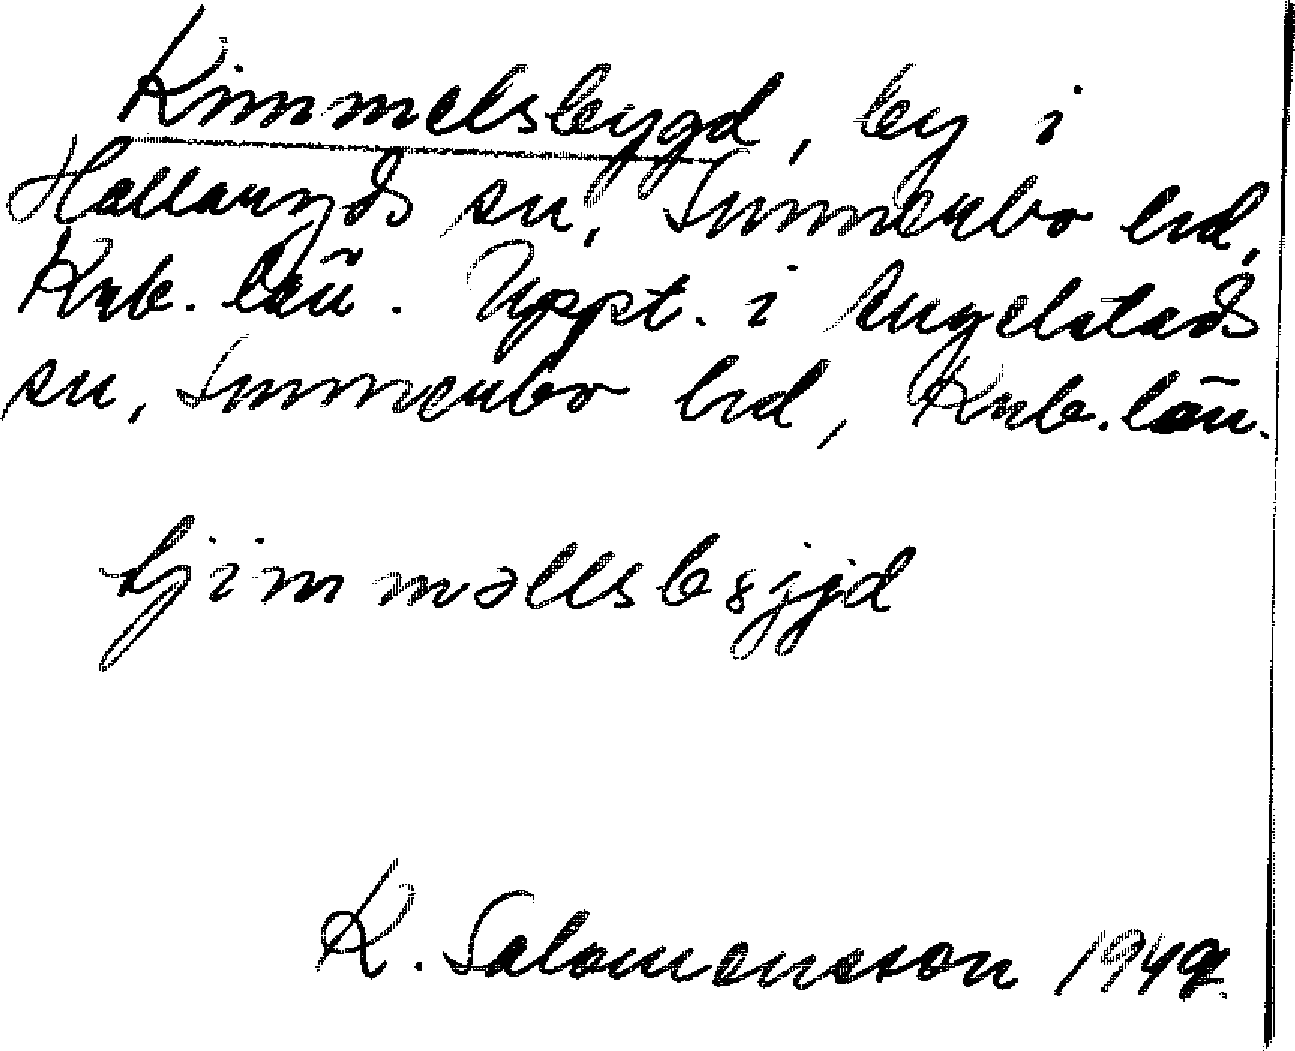 Kimmelsbygd, by i
Hallaryds sn, Sunnerbo hd,
Krb. län. Uppt. i Angelstads
sn, Sunnerbo hd, Krb. län.
K. Salomonsson 1949.